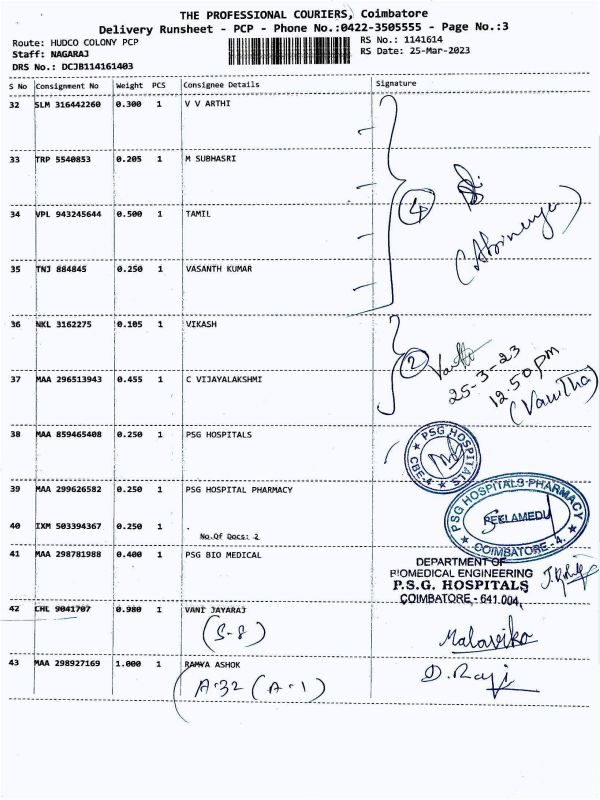 THE PROFESSIONAL COURIERS, Coimbatore
Delivery Runsheet - PCP - Phone No.:0422-3505555 - Page No.:3
Route: HUDCO COLONY PCP
RS No.: 1141614
Staff: NAGARAJ
RS Date: 25-Mar-2023
DRS No.: DCJB114161403
S No Consignment No Weight PCS Consignee Details Signature
32 SLM 316442260 0.300 1 V V ARTHI
33 TRP 5540853 0.205 1 M SUBHASRI
34 VPL 943245644 0.500 1 TAMIL
4
(Abinaya)
35 TNJ 884845 0.250 1 VASANTH KUMAR
36 NKL 3162275 0.105 1 VIKASH
2
25-3-23
12.50pm
(Vanitha)
37 MAA 296513943 0.455 1 C VIJAYALAKSHMI
38 MAA 859465408 0.250 1 PSG HOSPITALS
PSG HOSPITALS
CBE-4
39 MAA 299626582 0.250 1 PSG HOSPITAL PHARMACY
PSG HOSPITALS PHARMACY
PEELAMEDU
COIMBATORE - 4.
40 IXM 503394367 0.250 1 .
No.Of Docs: 2
41 MAA 298781988 0.400 1 PSG BIO MEDICAL
DEPARTMENT OF
BIOMEDICAL ENGINEERING
P.S.G. HOSPITALS
COIMBATORE - 641 004.
42 CHL 9041707 0.980 1 VANI JAYARAJ
(S-8)
Malavika
43 MAA 298927169 1.000 1 RAMYA ASHOK
(A-32 (A-1)
D. Raji